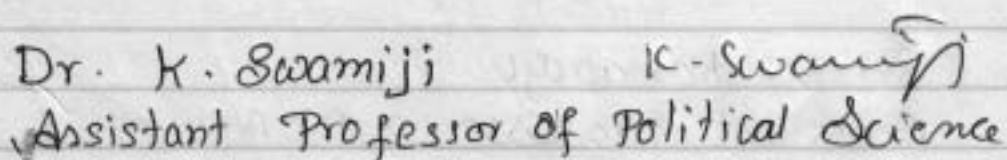 Dr. K. Swamiji K. Swamiji
Assistant Professor of Political Science